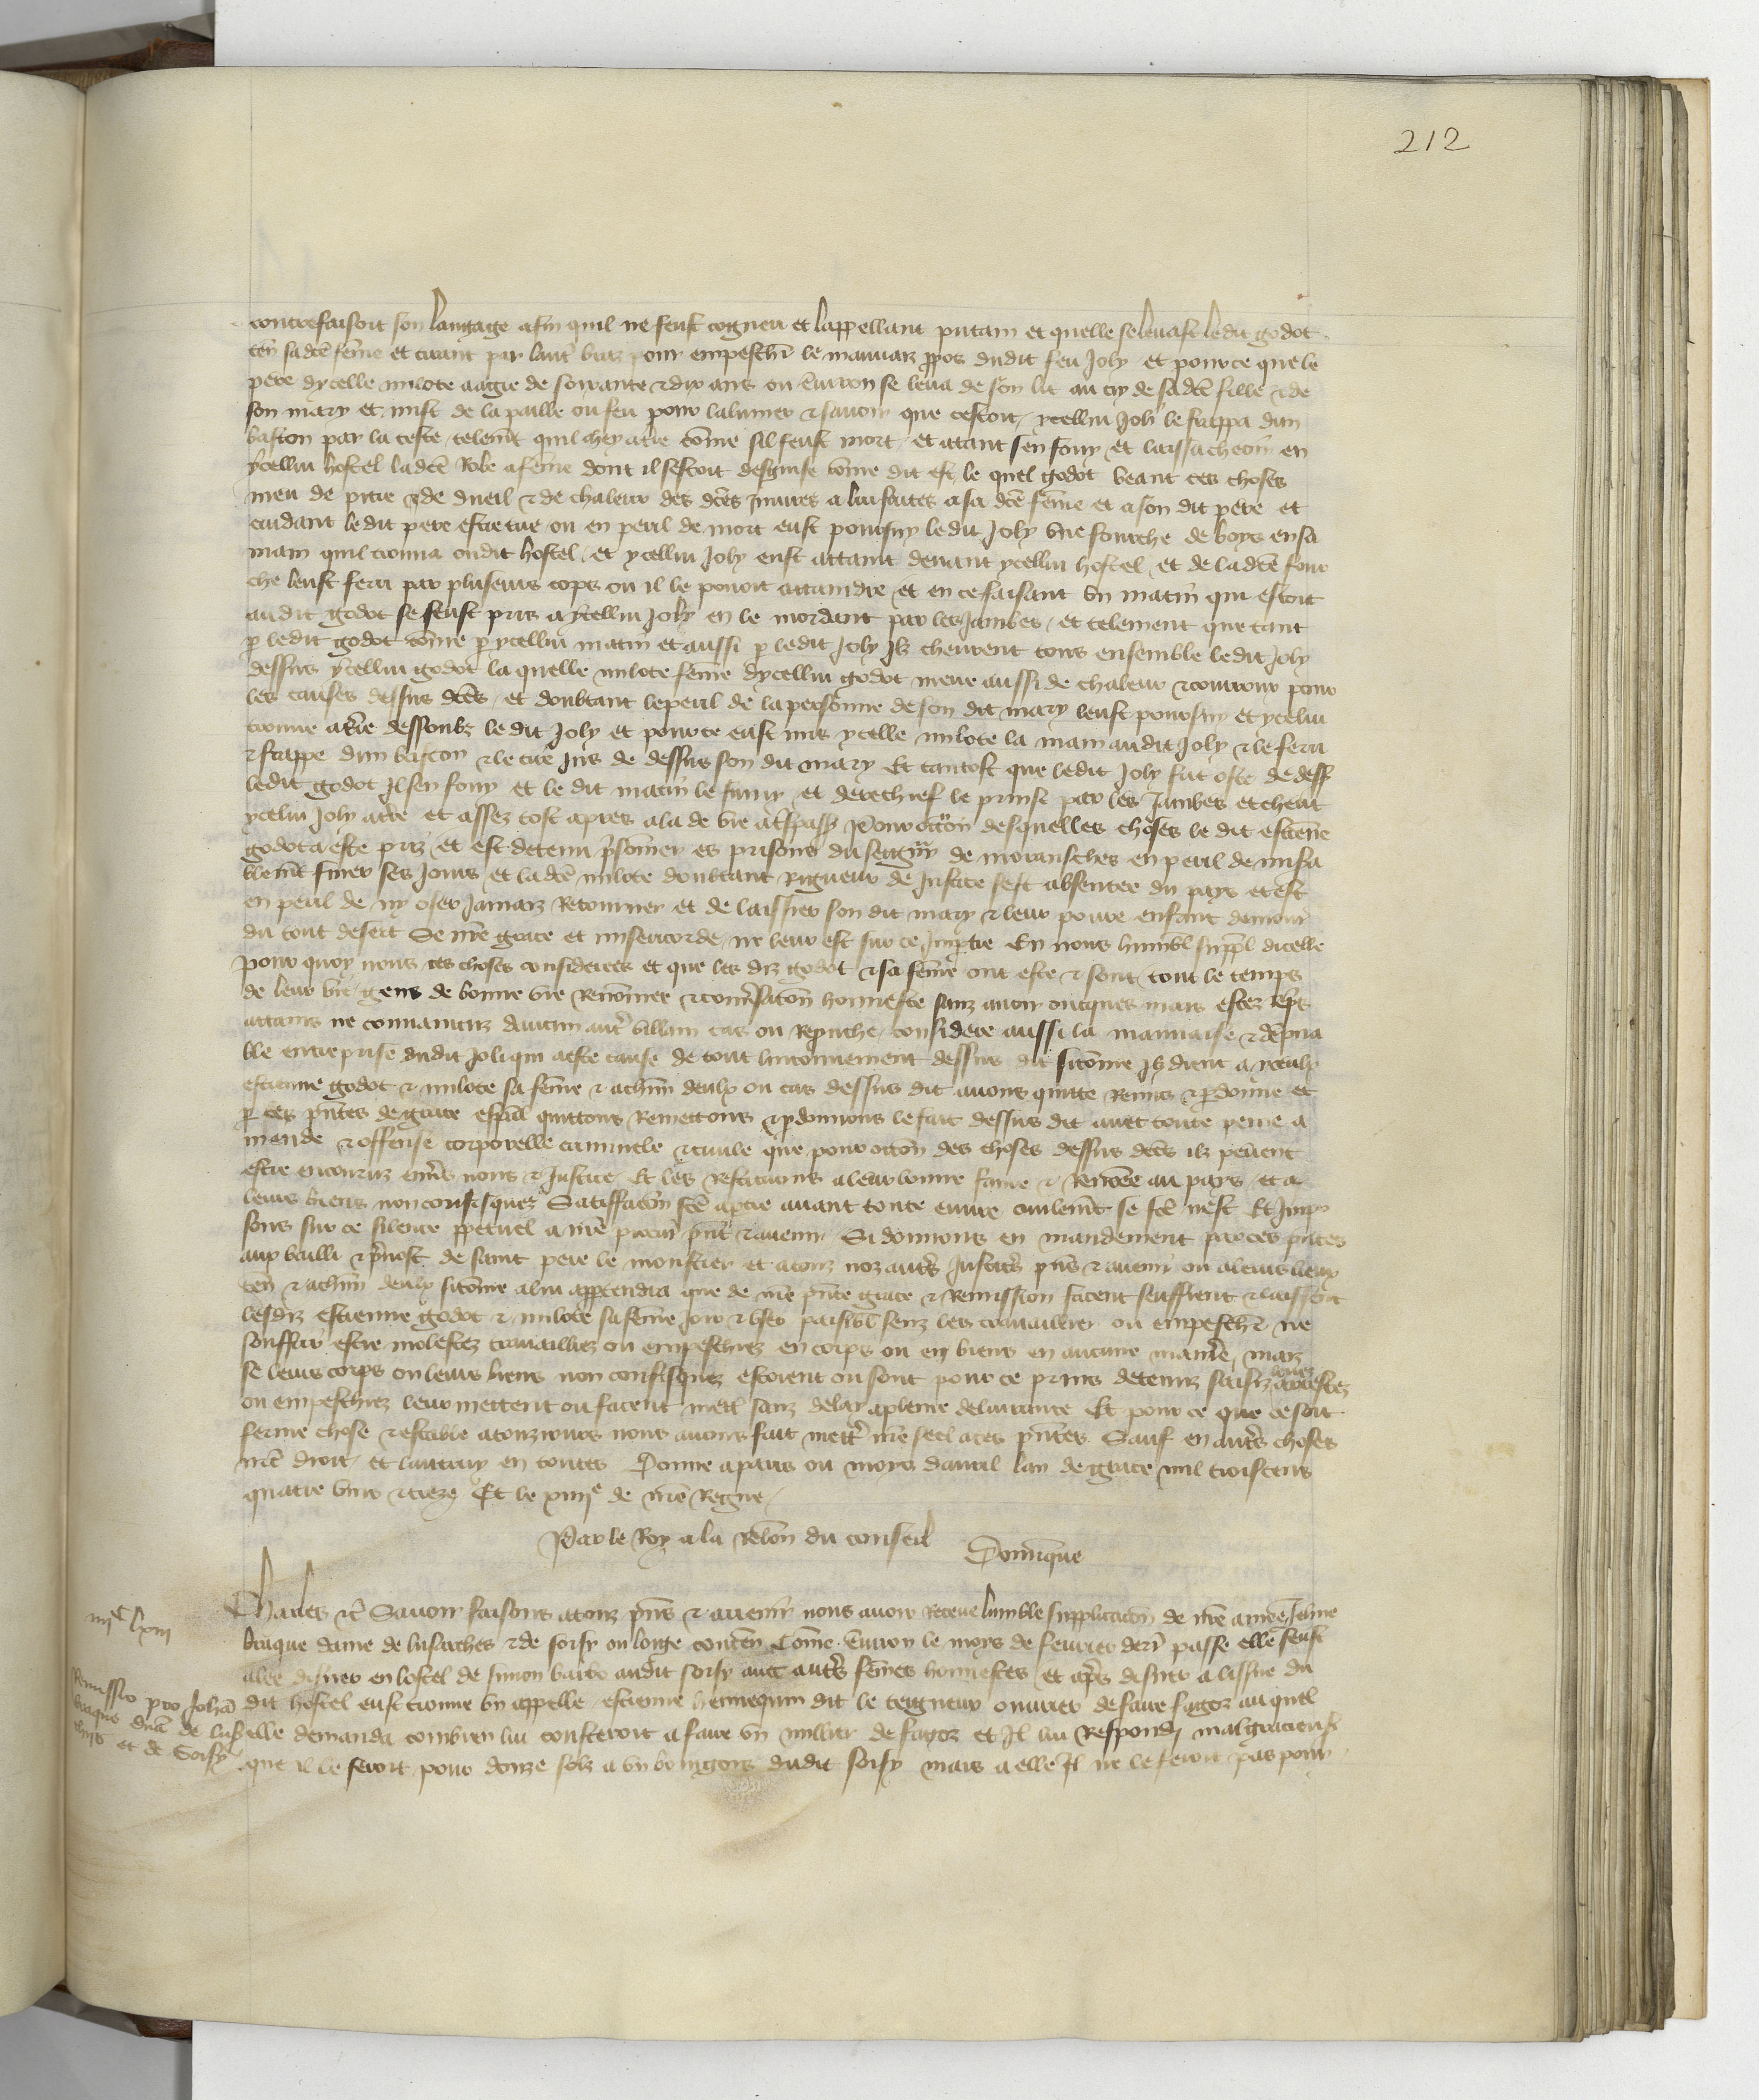 212
contrefaisoit son langage afin quil ne feust cogneu et lappellant putain et quelle se levast ledit godot
ten sa dce feme et tirant par laut braz pour empescher le mauvaiz ppos dudit feu Joly et pource que le
pere dycelle milote aagie de soixante & dix ans ou environ se leva de son lit au cry de sa dce fille & de
son mary et mist de la paille ou feu pour lalumer & savoir que cestoit / ycellui Joly le frappa dun
baston par la teste / telemt quil chey a tre come sil feust mort / et atant sen fouy et laissa cheoir en
ycellui hostel ladce Robe a feme dont il sestoit desguise come dit est / le quel godot veant ces choses
meu de pitie & de dueil & de chaleur des dces Injures a lui faites a sa dce feme et a son dit pere et
cuidant ledit pere estre tue ou en peril de mort eust poursuy ledit Joly une fourche de boys en sa
main quil trouva oudit hostel / et ycellui Joly eust attaint devant ycellui hostel / et de ladce four
che leust feru par pluseurs cops ou il le povoit attaindre / et en ce faisant un matin qui estoit
audit godot se feust pris a ycellui Joly en le mordant par les Jambes / et telement que tant
p ledit godot come p ycellui matin et aussi p ledit Joly Ilz cheurent tous ensemble ledit Joly
dessus ycellui godot la quelle milote feme dycellui godot meue aussi de chaleur & courroux pour
les causes dessus dces / et doubtant le peril de la personne de son dit mary leust poursuy et ycelui
trouve a tre dessoubz le dit Joly et pource eust mis ycelle milote la main audit Joly & le feru
& frappe dun baston & le tire jus de dessus son dit mary Et tantost que ledit Joly fut oste de dess
ledit godot Il sen fouy et le dit matin le suivy et derechief le prinst par les Jambes et cheut
ycelui Joly a tre et assez tost apres ala de vie a trespass Pour occon desquelles choses le dit estiene
godot a este priz et est detenu prisonier es prisons du seigneur de moransches en peril de misera
blemt finer ses Jours et ladce milote doubtant rigueur de Justice sest absentee du pays et est
en peril de ny oser Jamaiz Retourner et de laissier son dit mary & leur povre enfant demour
du tout desert Se nre grace et misericorde ne leur est sur ce Imptie En nous humbl suppl dicelle
pour quoy nous ces choses considerees et que les diz godot & sa feme ont este & sont tout le temps
de leur vie gens de bonne vie Renomee & conversacon honneste sanz avoir oncques mais estez reps
attains ne convaincuz daucun aut villain cas ou Reprouche / considere aussi la mauvaise & dampna
ble entreprise dudit Joli qui a este cause de tout linconvenient dessus dit sicome Ilz dient a yceulx
estienne godot & milote sa feme & a chun deulx ou cas dessus dit avons quitte Remis & pdonne et
p ces pntes de grace espal quittons Remettons & pdonnons le fait dessus dit avec toute peine a
mende & offense corporelle criminele & civile que pour occon des choses dessus dces ilz pevent
estre encouruz envs nous & Justice / Et les restituons a leur bonne fame & Renomee au pays et a
leurs biens non confisquez Satiffacon fce a ptie avant toute euvre civilemt se fce nest Et Impo
sons sur ce silence ppetuel a nre procur pnt & avenir Si donnons en mandement par ces pntes
aux bailli & prevost de saint pere le monstier et a touz noz autres Justiciers pns & avenir ou a leurs lieux
ten & a chun deulx sicome a lui appartendra que de nre pnte grace & Remission facent seuffrent & laissent
lesdiz estienne godot & milote sa feme joir & user paisibl senz les travaillier ou empescher ne
souffrir estre molestez travailliez ou empeschiez en corps ou en biens en aucune maniere / maiz
se leurs corps ou leurs biens non confisquez estoient ou sont pour ce prins detenuz saisiz arrestez
ou empeschiez leur mettent ou facent mett sanz delay a pleine delivrance Et pour ce que ce soit
ferme chose & estable a touzjours nous avons fait mettre nre seel a ces pntes Sauf en autres choses
nre droit / et lautruy en toutes Donne a paris ou moys davril lan de grace mil troiscens
quatre vins & treze Et le xiiie de nre Regne /
Par le Roy a la Relon du conseil Dominique
iiic lxiii
Charles &c Savoir faisons a touz pns & avenir nous avoir Receue lumble supplicacon de nre amee Jehne
braque dame de lusarches & de soisy ou loge conten Come environ le moys de fevrier derr passe elle feust
alee disner en lostel de simon barbe audit soisy avec autres femes honnestes et aprs disner a lissue du
Remissio pro Johna
braque dna de lusar
chiis et de Soisy
dit hostel eust trouve un appelle estienne hennequin dit le teigneur ouvrier de faire fagoz auquel
elle demanda combien lui cousteroit a faire un millier de fagoz et Il lui Respondi malgracieusemt
que il le feroit pour douze solz a un bourgois dudit soisy mais a elle Il ne le feroit pas pour